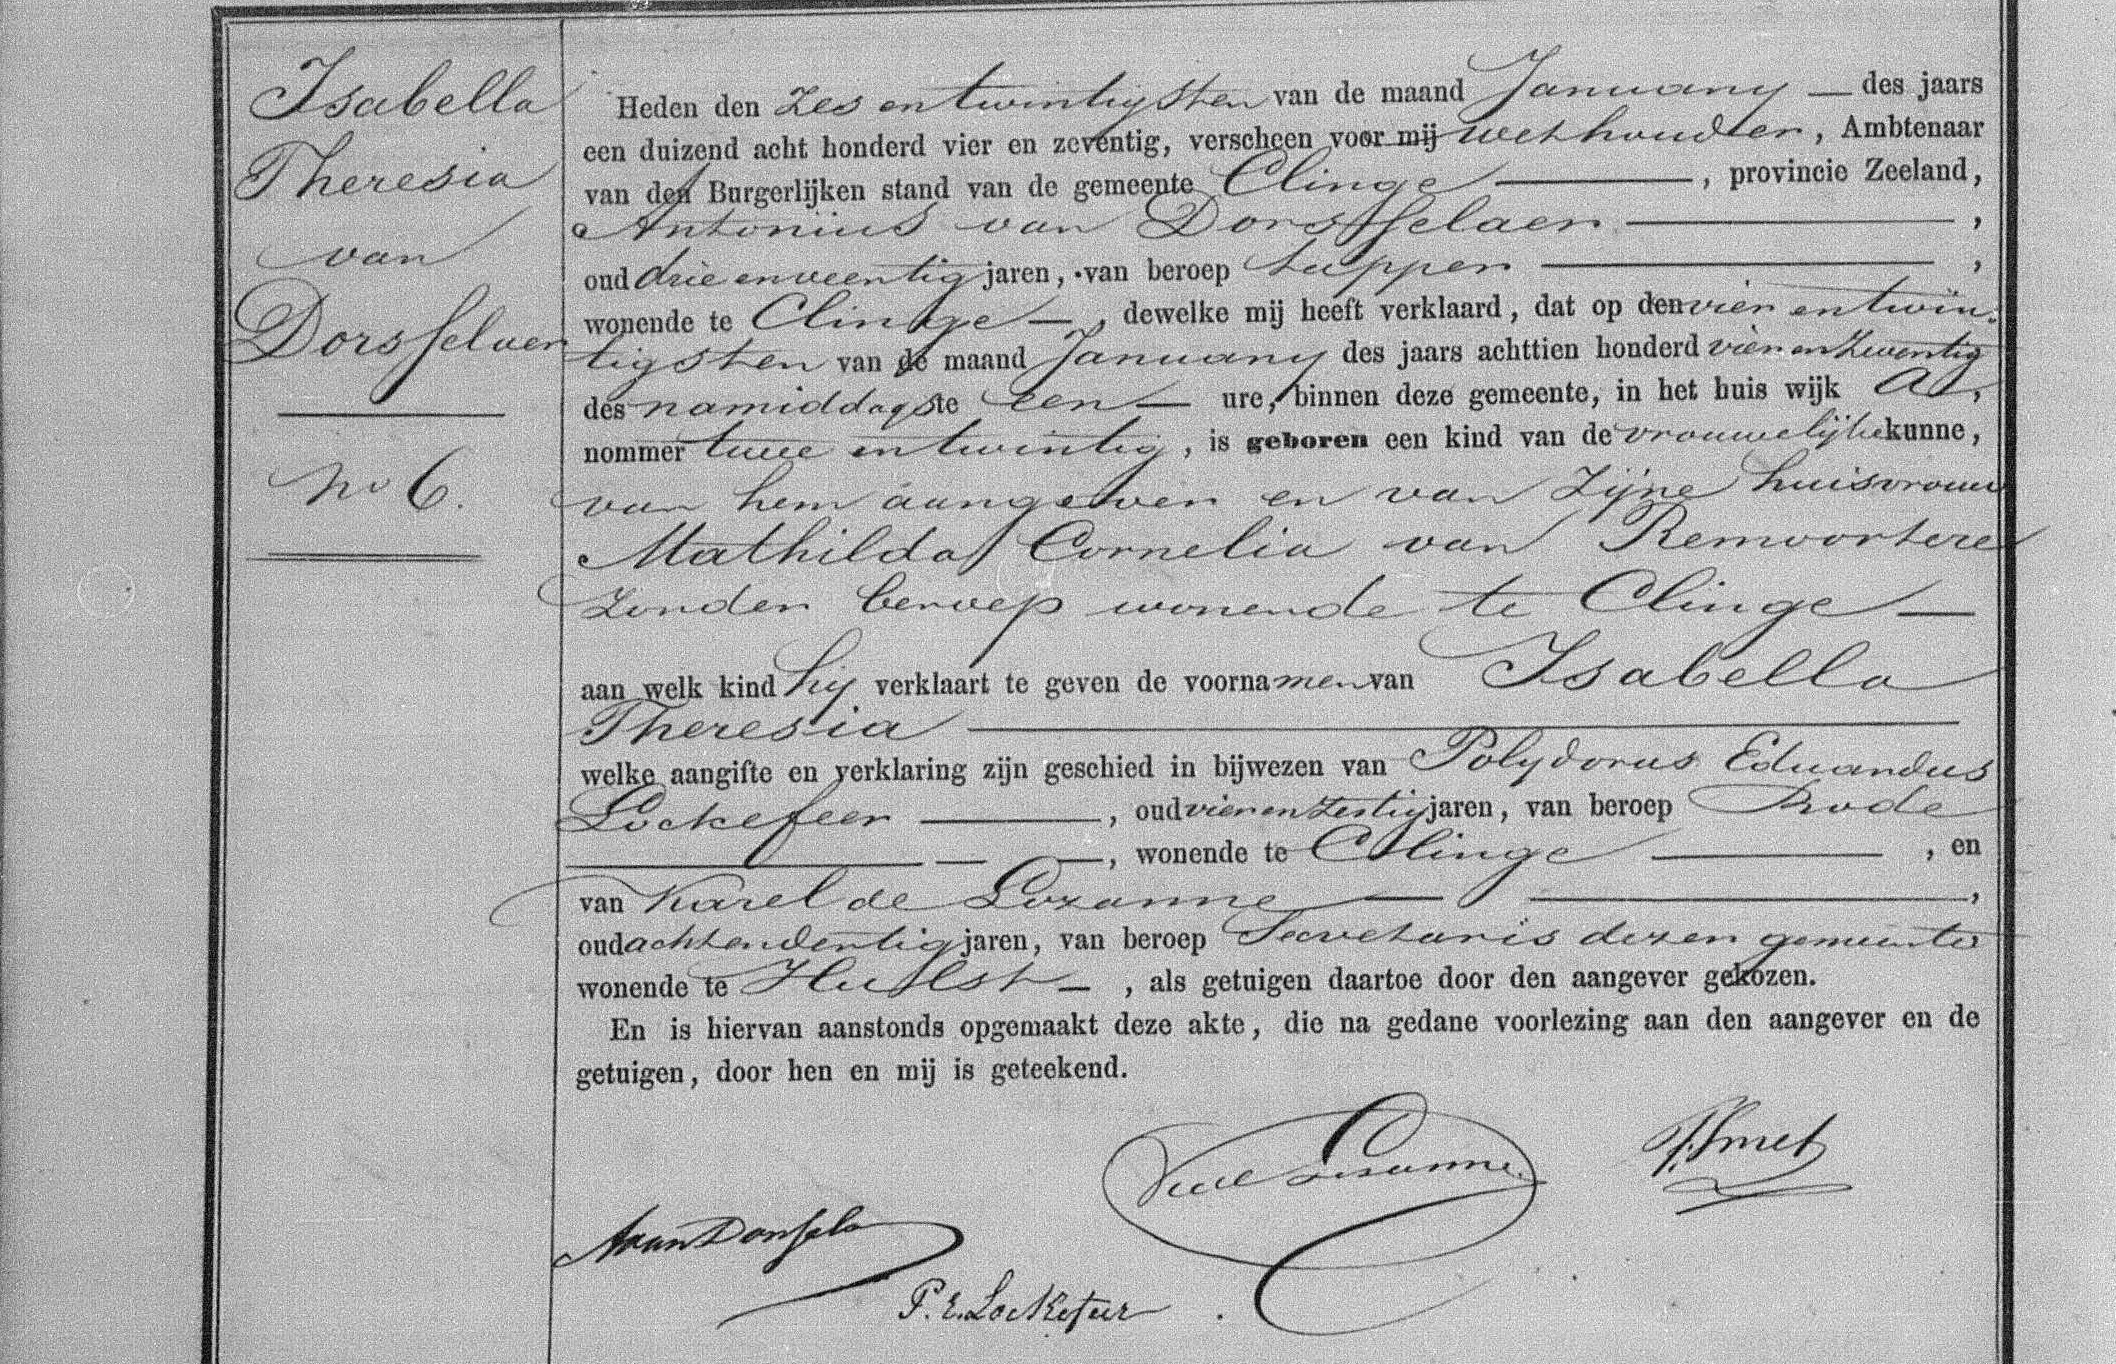 Isabella
Theresia
van
Dorsselaer
No 6.
Heden den zes en twintigsten van de maand January — des jaars
een duizend acht honderd vier en zeventig, verscheen voor mij wethouder, Ambtenaar
van den Burgerlijken stand van de gemeente Clinge —, provincie Zeeland,
Antonius van Dorsselaer —,
oud drie en veertig jaren, van beroep tapper —,
wonende te Clinge —, dewelke mij heeft verklaard, dat op den vier en twin-
tigsten van de maand January des jaars achttien honderd vier en zeventig
des namiddags te een — ure, binnen deze gemeente, in het huis wijk A,
nommer twee en twintig, is geboren een kind van de vrouwelijke kunne,
van hem aangever en van zijne huisvrouw
Mathilda Cornelia van Remoortere
zonder beroep wonende te Clinge —
aan welk kind hij verklaart te geven de voornamen van Isabella
Theresia —
welke aangifte en verklaring zijn geschied in bijwezen van Polydorus Eduardus
Lockefeer —, oud vier en zestig jaren, van beroep Bode
— — —, wonende te Clinge —, en
van Karel de Lozanne — —,
oud acht en dertig jaren, van beroep Secretaris dezer gemeente
wonende te Hulst —, als getuigen daartoe door den aangever gekozen.
En is hiervan aanstonds opgemaakt deze akte, die na gedane voorlezing aan den aangever en de
getuigen, door hen en mij is geteekend.
P. E. Lockefeer